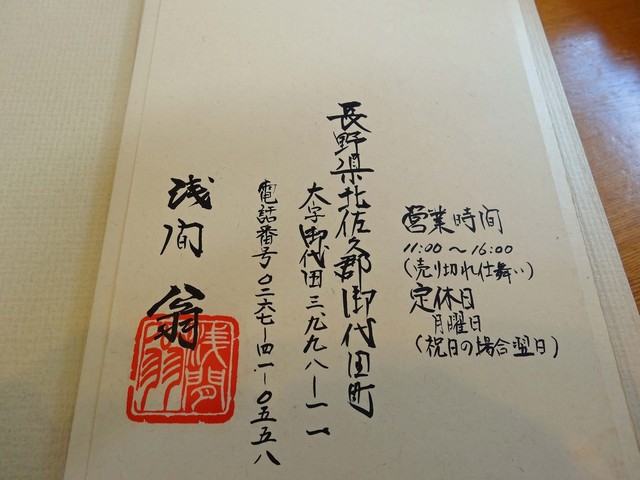 営業時间
11:00〜16:00
(売り切れ仕舞い)
定休日
月曜日
(祝日の場合翌日)
長野県北佐久郡御代田町
大字御代田三、九九八ー一一
電話番号〇二六七ー四一ー〇五五八
浅间翁
浅間翁